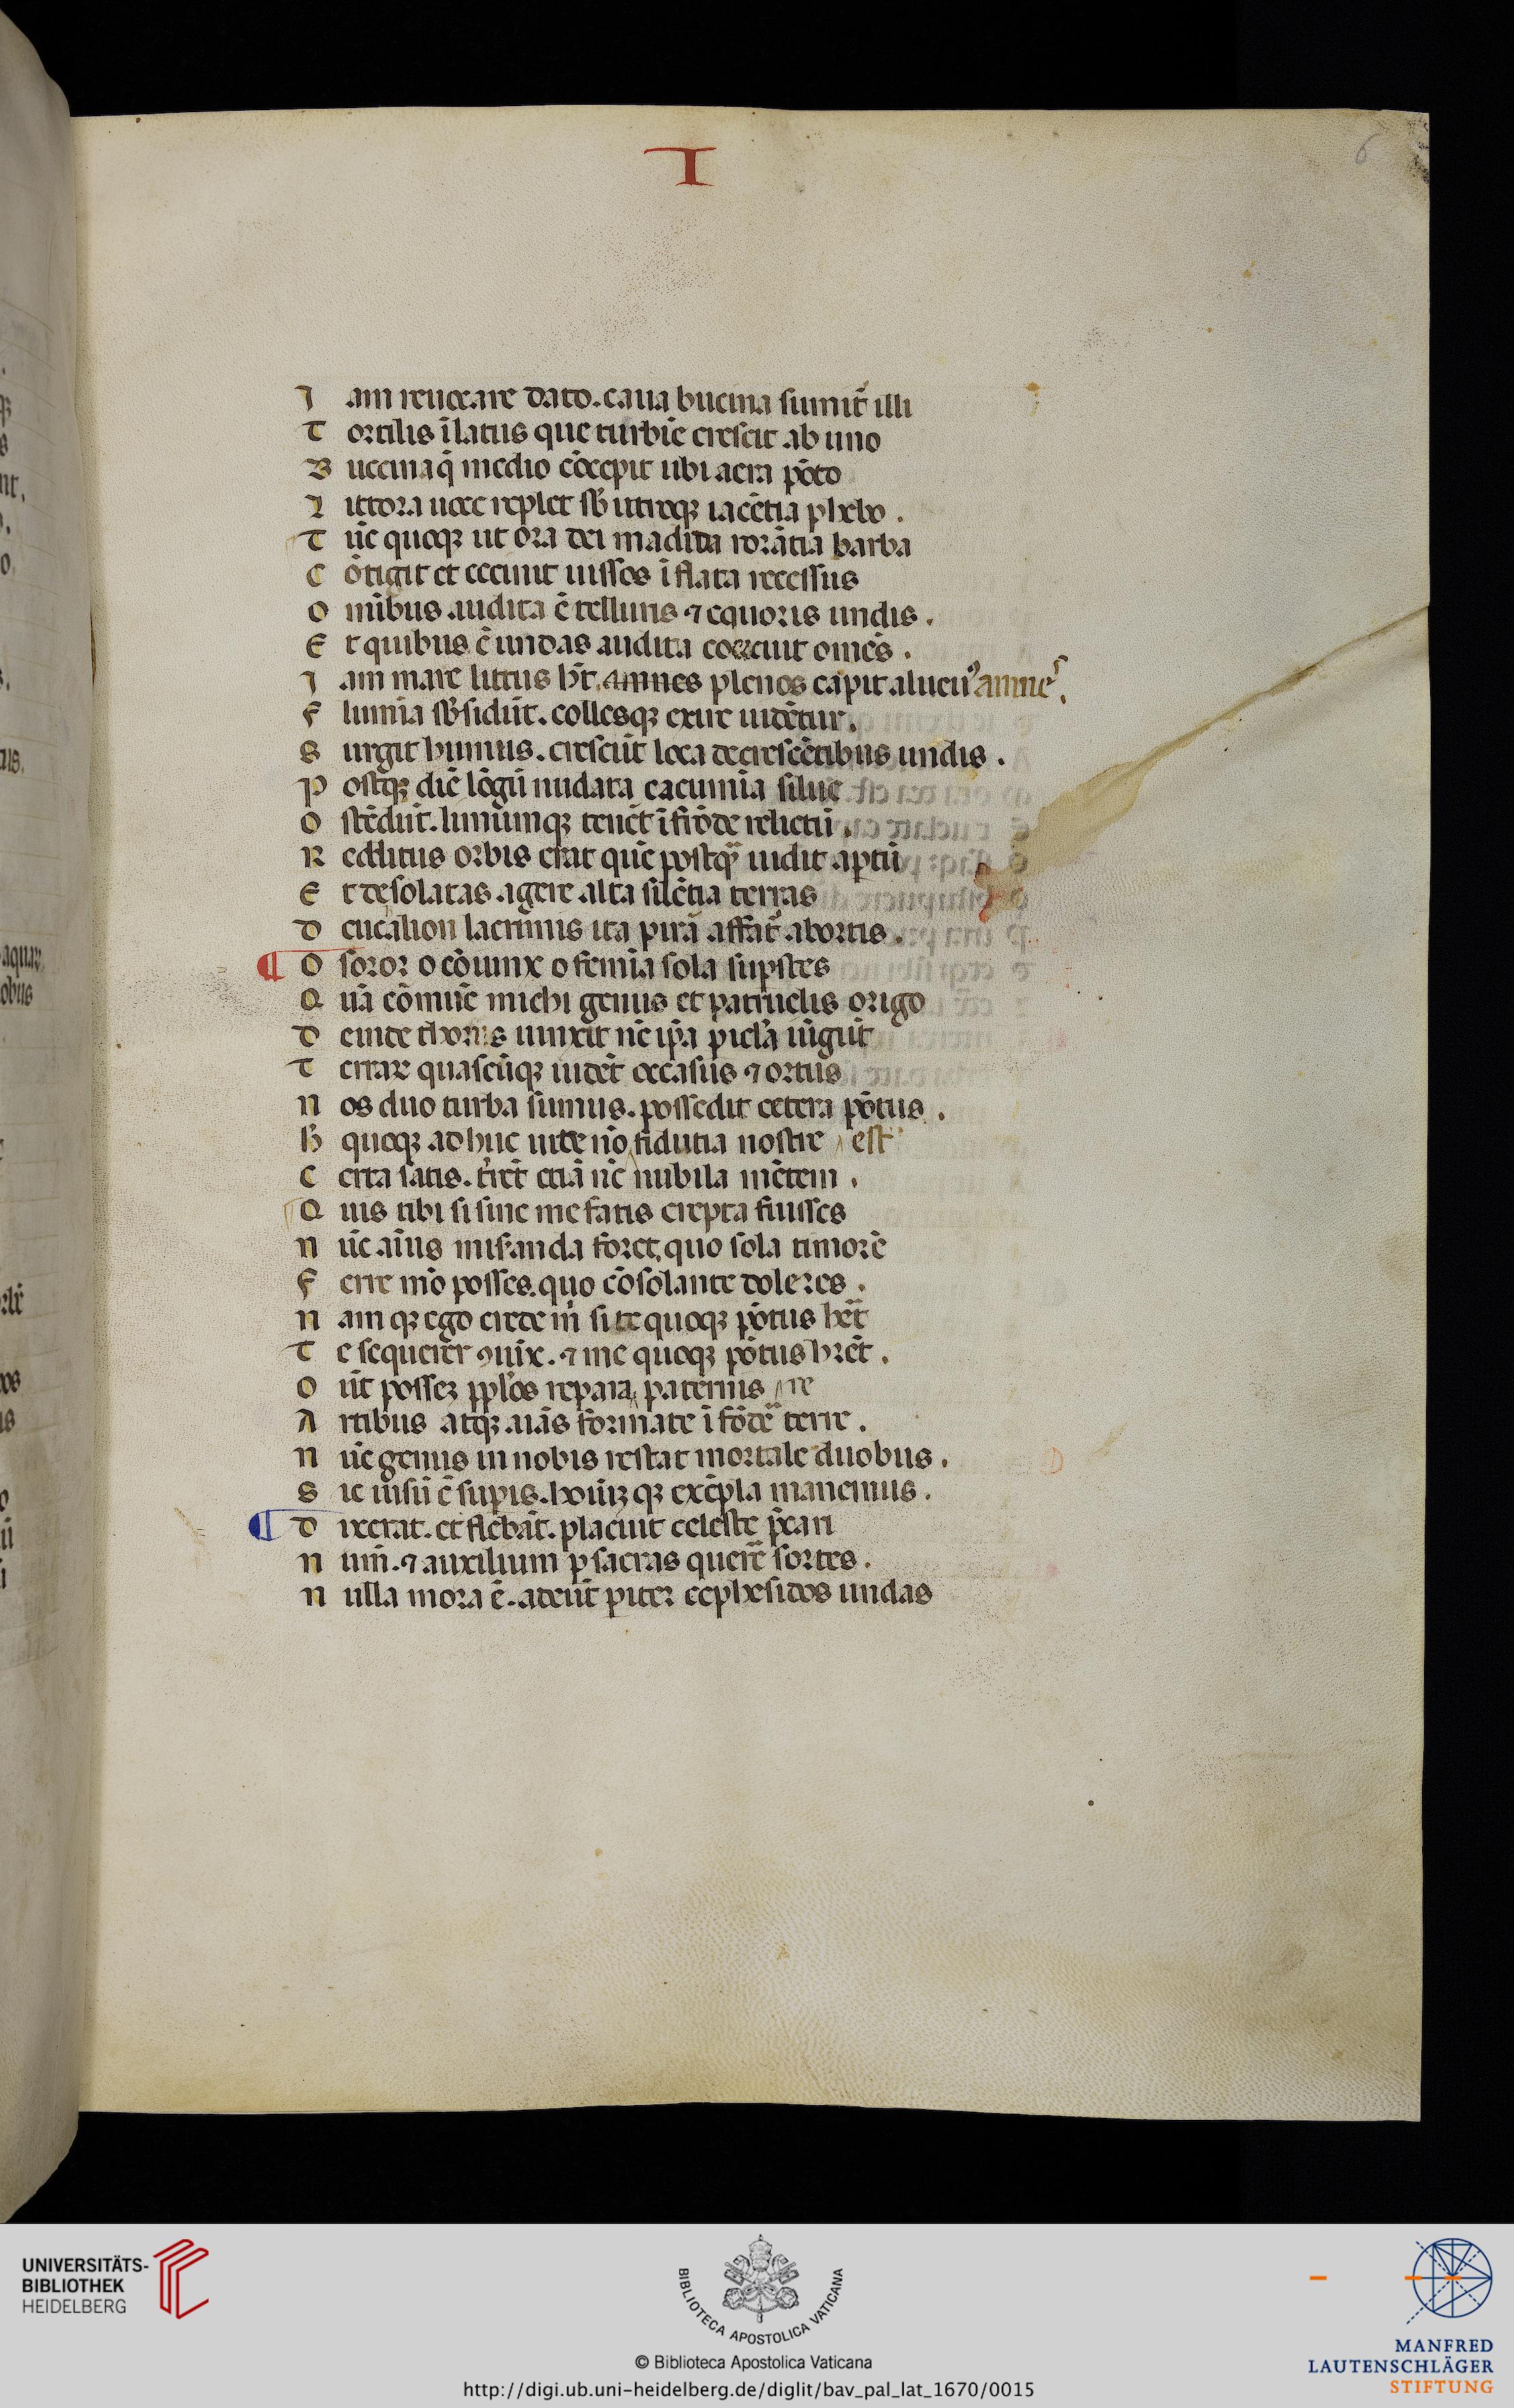 I
6
I am reuocare dato. caua bucina sumit᷑ illi
T ortilis ĩ latus que turbĩe crescit ab uno
B uccina q̃ medio cõcepit ubi aera põto
L ittora uoce replet sb̃ utroqꝫ iacẽtia phebo .
T ũc quoqꝫ ut ora dei madida rorãtia barba
C õtigit et cecinit iussos ĩflata recessus
O mĩbus audita ẽ telluris ⁊ equoris undis .
E t quibus ẽ undas audita cohercuit omẽs .
I am mare littus hꝫt. amnes plenos capit alueus amnes .
F lumĩa sb̃sidũt. collesqꝫ exire uidẽtur .
S urgit humus. crescũt loca decrescẽtibus undis .
P ostqꝫ diẽ lõgũ nudata cacumĩa silue
O stẽdũt. limumqꝫ tenẽt ĩ frõde relictũ .
R edditus orbis erat quẽ postq̃ uidit aptũ
E t desolatas agere alta silẽtia terras
D eucalion lacrimis ita pirã affat᷑ abortis .
O soror o cõiunx o femĩa sola sup̱stes
Q uã cõmũe michi genus et patruelis origo
D einde thorus iunxit nc̃ ip̃a picl'a iũgũt
T errarꝫ quascũqꝫ uidẽt occasus ⁊ ortus
N os duo turba sumus. possedit cetera põtus .
H quoqꝫ adhuc uite nõ fidutia nostre est
C erta satis. t'rẽt etiã nc̃ nubila mẽtem .
Q uis tibi si sine me fatis erepta fuisses
N ũc aĩus mis'anda foret. quo sola timorẽ
F erre mõ posses. quo cõsolante doleres .
N amqꝫ ego crede m̃ si te quoqꝫ põtus hẽt
T e sequerer ꝯiux. ⁊ me quoqꝫ põtus hꝫet .
O ũt possez pp̃l'os repara paternis re
A rtibus atqꝫ aĩas formate ĩfũde terre .
N ũc genus in nobis restat mortale duobus .
S ic uisũ ẽ sup̱is. hoĩuꝫqꝫ exẽpla manemus .
D ixerat. et flebãt. placuit celeste p̃cari
N um̃. ⁊ auxilium p̱ sacras querẽ sortes .
N ulla mora ẽ. adeũt piter cephesidos undas
UNIVERSITÄTS-
BIBLIOTHEK
HEIDELBERG
BIBLIOTECA APOSTOLICA VATICANA
© Biblioteca Apostolica Vaticana
http://digi.ub.uni-heidelberg.de/diglit/bav_pal_lat_1670/0015
MANFRED
LAUTENSCHLÄGER
STIFTUNG